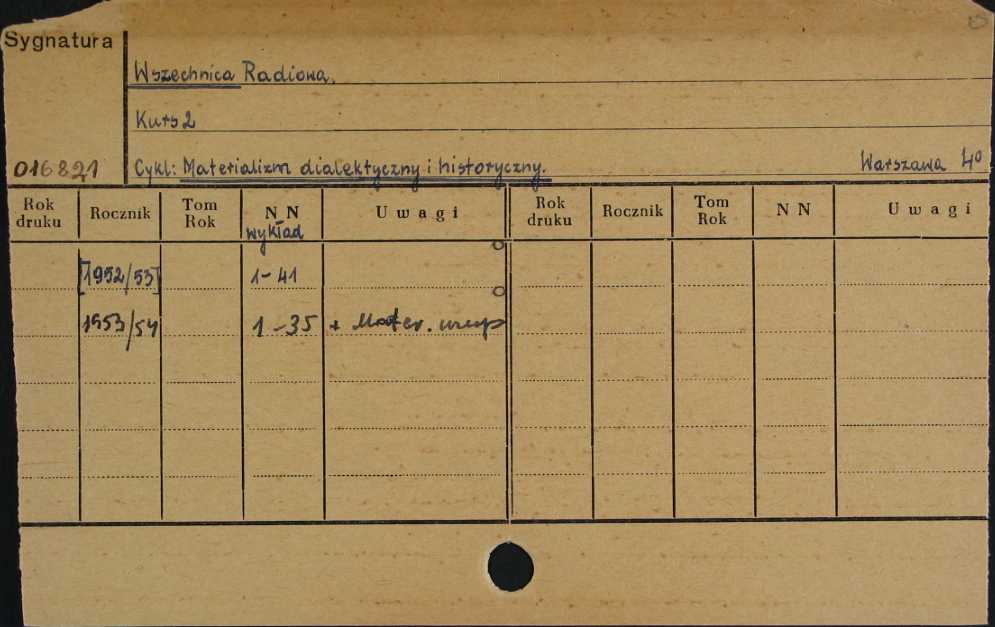 Sygnatura
Wszechnica Radiowa.
Kurs 2
016821 Cykl: Materializm dialektyczny i historyczny. Warszawa 4°
Rok druku Rocznik Tom Rok NN Uwagi Rok druku Rocznik Tom Rok NN Uwagi
wykład
[1952/53] 1-41
1953/54 1-35 + Mater.